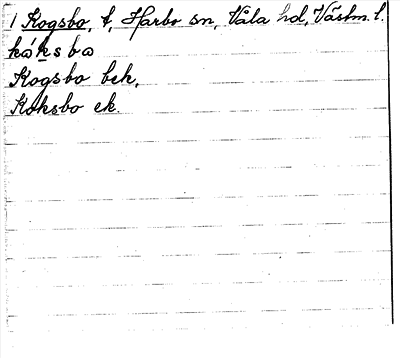 1 Kogsbo, t, Harbo sn, Våla hd, Västm. l.
kåksba
Kogsbo bek,
Koksbo ek.